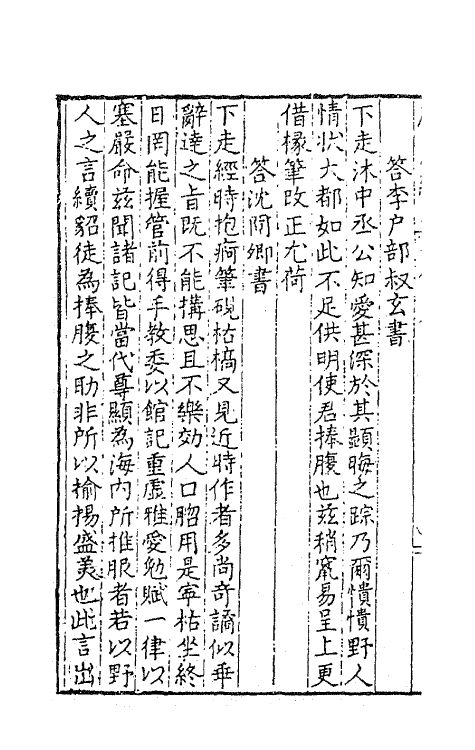 答李户部叔玄書
下走沐中丞公知愛甚深於其顯晦之踪乃爾憒憒野人
情狀大都如此不足供明使君捧腹也兹稍竄易呈上更
借椽筆改正尤荷
答沈閑卿書
下走經時抱痾筆硯枯槁又見近時作者多尚奇譎似乖
辭達之旨既不能搆思且不樂効人口脗用是寧枯坐終
日罔能握管前得手教委以館記重虚雅愛勉賦一律以
塞嚴命兹聞諸記皆當代尊顯為海内所推服者若以野
人之言續貂徒為捧腹之助非所以揄揚盛美也此言出